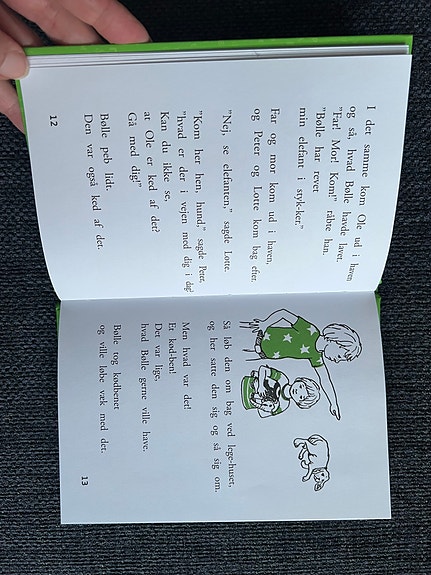 I det samme kom Ole ud i haven
og så, hvad Bølle havde lavet.
"Far! Mor! Kom!" råbte han.
"Bølle har revet
min elefant i styk-ker."
Far og mor kom ud i haven,
og Peter og Lotte kom bag efter.
"Nej, se elefanten," sagde Lotte.
"Kom her hen, hund," sagde Peter,
"hvad er der i vejen med dig i dag?
Kan du ikke se,
at Ole er ked af det?
Gå med dig!"
Bølle peb lidt.
Den var også ked af det.
12
Så løb den om bag ved lege-huset,
og her satte den sig og så sig om.
Men hvad var det!
Et kød-ben!
Det var lige,
hvad Bølle gerne ville have.
Bølle tog kødbenet
og ville løbe væk med det.
13